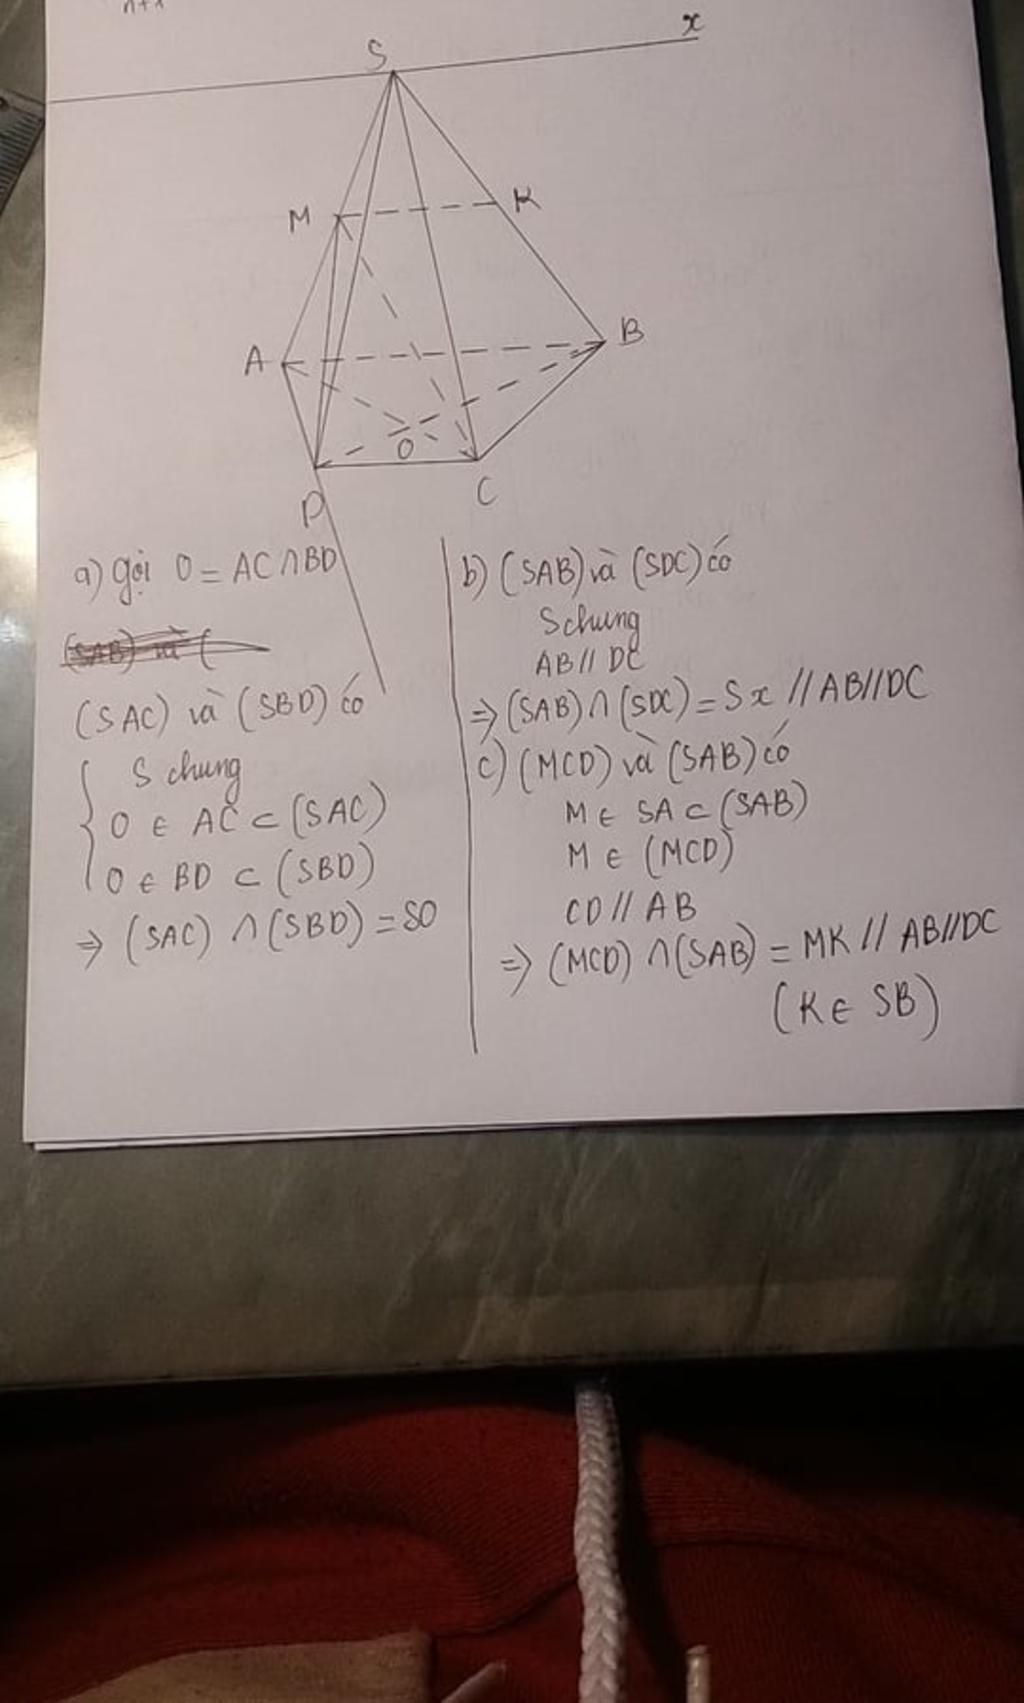 n+1
S
x
M
K
A
B
O
D
C
a) gọi O = AC ∩ BD
(SAB) và (
(SAC) và (SBD) có
S chung
O ∈ AC ⊂ (SAC)
O ∈ BD ⊂ (SBD)
⇒ (SAC) ∩ (SBD) = SO
b) (SAB) và (SDC) có
S chung
AB // DC
⇒ (SAB) ∩ (SDC) = Sx // AB // DC
c) (MCD) và (SAB) có
M ∈ SA ⊂ (SAB)
M ∈ (MCD)
CD // AB
⇒ (MCD) ∩ (SAB) = MK // AB // DC
(K ∈ SB)